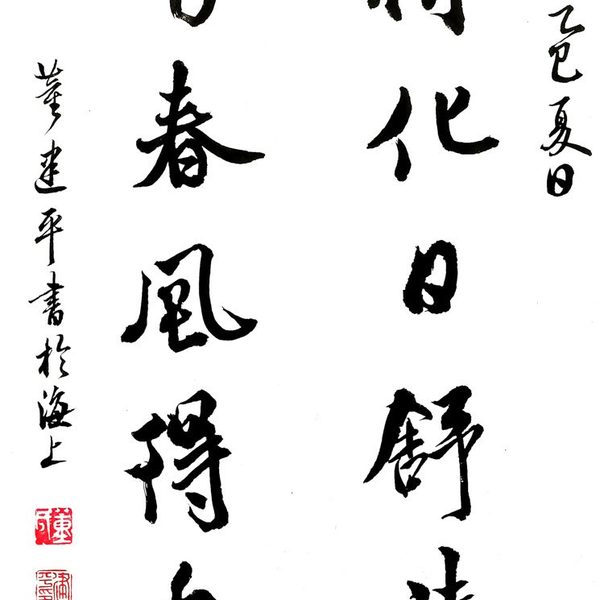 乙巳夏日
化日舒
春風得
董建平書於海上